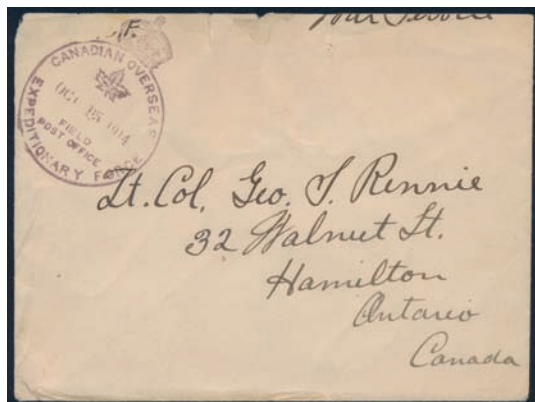 War Service
F.
CANADIAN OVERSEAS
EXPEDITIONARY FORCE
OCT 1914
FIELD
POST OFFICE
Lt. Col. Geo. S. Rennie
32 Walnut St.
Hamilton
Ontario
Canada